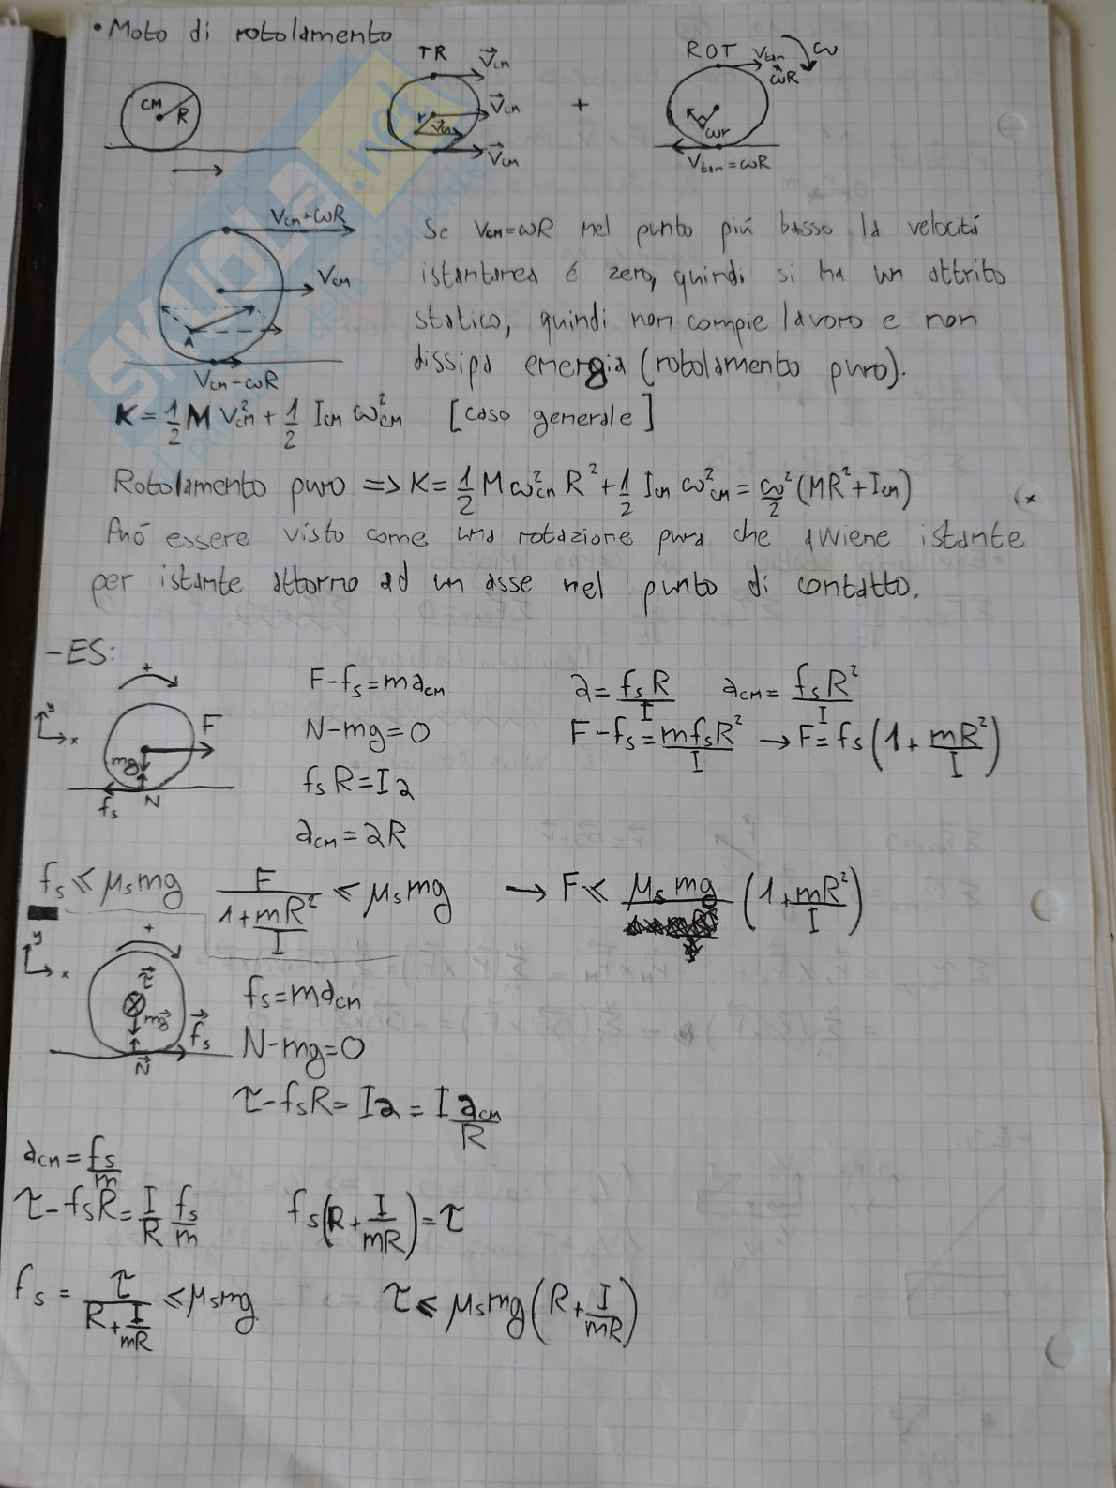 • Moto di rotolamento
TR
ROT
CM
R
V⃗cm
V⃗cm
V⃗cm
r
+
Vtan
ωR
ω
ωr
Vtan=ωR
Vcm+ωR
Vcm
A
Vcm-ωR
Se Vcm=ωR nel punto più basso la velocità
istantanea é zero, quindi si ha un attrito
statico, quindi non compie lavoro e non
dissipa energia (rotolamento puro).
K=1/2 M Vcm² + 1/2 Icm ωcm² [caso generale]
Rotolamento puro => K= 1/2 M ωcm² R² + 1/2 Icm ωcm² = ω²/2 (MR²+Icm)
Può essere visto come una rotazione pura che avviene istante
per istante attorno ad un asse nel punto di contatto.
-ES:
+
y
x
F
mg
N
fs
F-fs=macm
N-mg=0
fsR=Iα
acm=αR
α=fsR/I acm=fsR²/I
F-fs=mfsR²/I → F=fs(1+mR²/I)
fs ≤ μsmg F/(1+mR²/I) ≤ μsmg → F ≤ μsmg (1+mR²/I)
+
y
x
τ⃗
mg⃗
f⃗s
N⃗
fs=macm
N-mg=0
τ-fsR=Iα=I acm/R
acm=fs/m
τ-fsR=I/R fs/m fs(R+I/mR)=τ
fs=τ/(R+I/mR) ≤ μsmg τ ≤ μsmg(R+I/mR)
SKUOLA.net